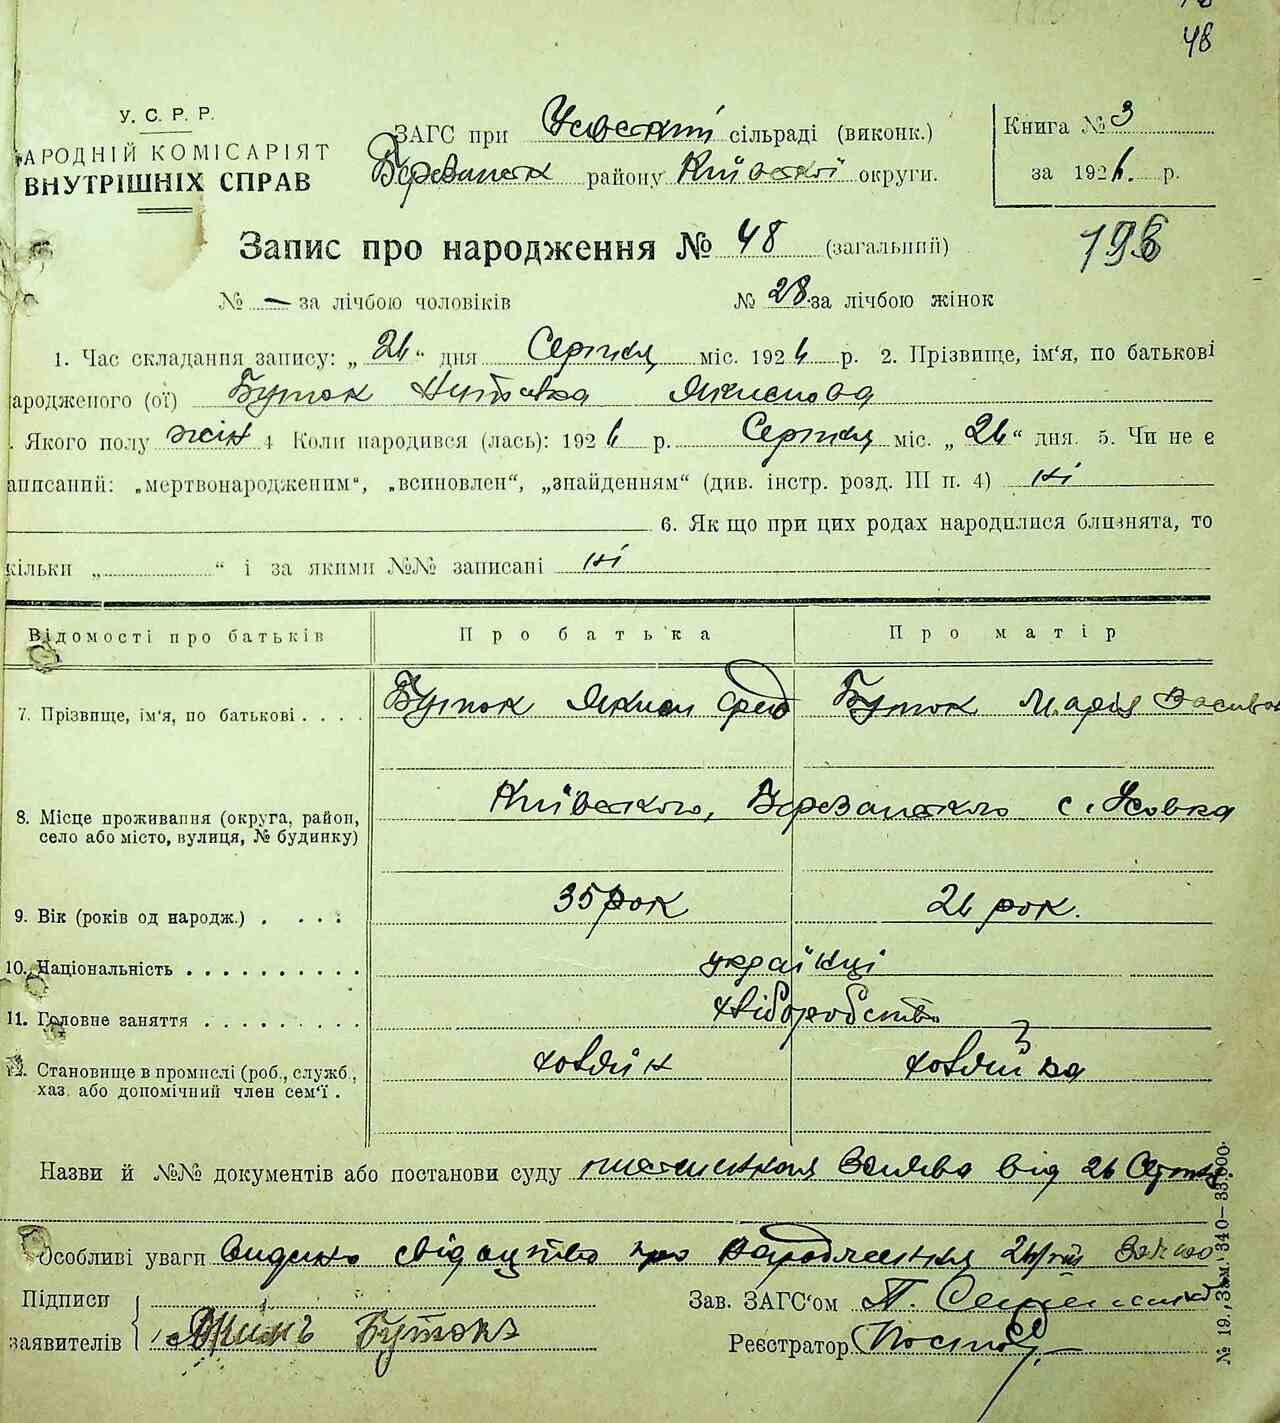 48
У. С. Р. Р.
АРОДНІЙ КОМІСАРІЯТ
ВНУТРІШНІХ СПРАВ
ЗАГС при Усовскій сільраді (виконк.)
Березанск району Київскої округи.
Книга № 3
за 1926. р.
Запис про народження № 48 (загальний)
№ — за лічбою чоловіків № 28 за лічбою жінок
1. Час складання запису: „26“ дня Серпня міс. 1926 р. 2. Прізвище, ім‘я, по батькові
ародженого (ої) Буток Якимова
. Якого полу жін 4 Коли народився (лась): 1926 р. Серпня міс. „26“ дня. 5. Чи не є
аписаний: „мертвонародженим“, „всиновлен“, „знайденням“ (див. інстр. розд. III п. 4) ні
6. Як що при цих родах народилися близнята, то
кільки „ “ і за якими №№ записані ні
Відомості про батьків Про батька Про матір
7. Прізвище, ім‘я, по батькові . . . . Буток Яким Буток Марія Васил
8. Місце проживання (округа, район,
село або місто, вулиця, № будинку)
Київского, Березанского с. Усовка
9. Вік (років од народж.) . . . . 35 рок 26 рок.
10. Національність . . . . . . . . . . українці
11. Головне заняття . . . . . . . . . хліборобство
12. Становище в промислі (роб., служб.,
хаз. або допомічний член сем‘ї .
хозяїн хозяйка
Назви й №№ документів або постанови суду заява від 26 Серпня
Особливі уваги видано свідоцтво про народження
Підписи
заявителів Якимъ Бутокъ
Зав. ЗАГС‘ом
Реєстратор
№ 19., Зам. 340—33.000.